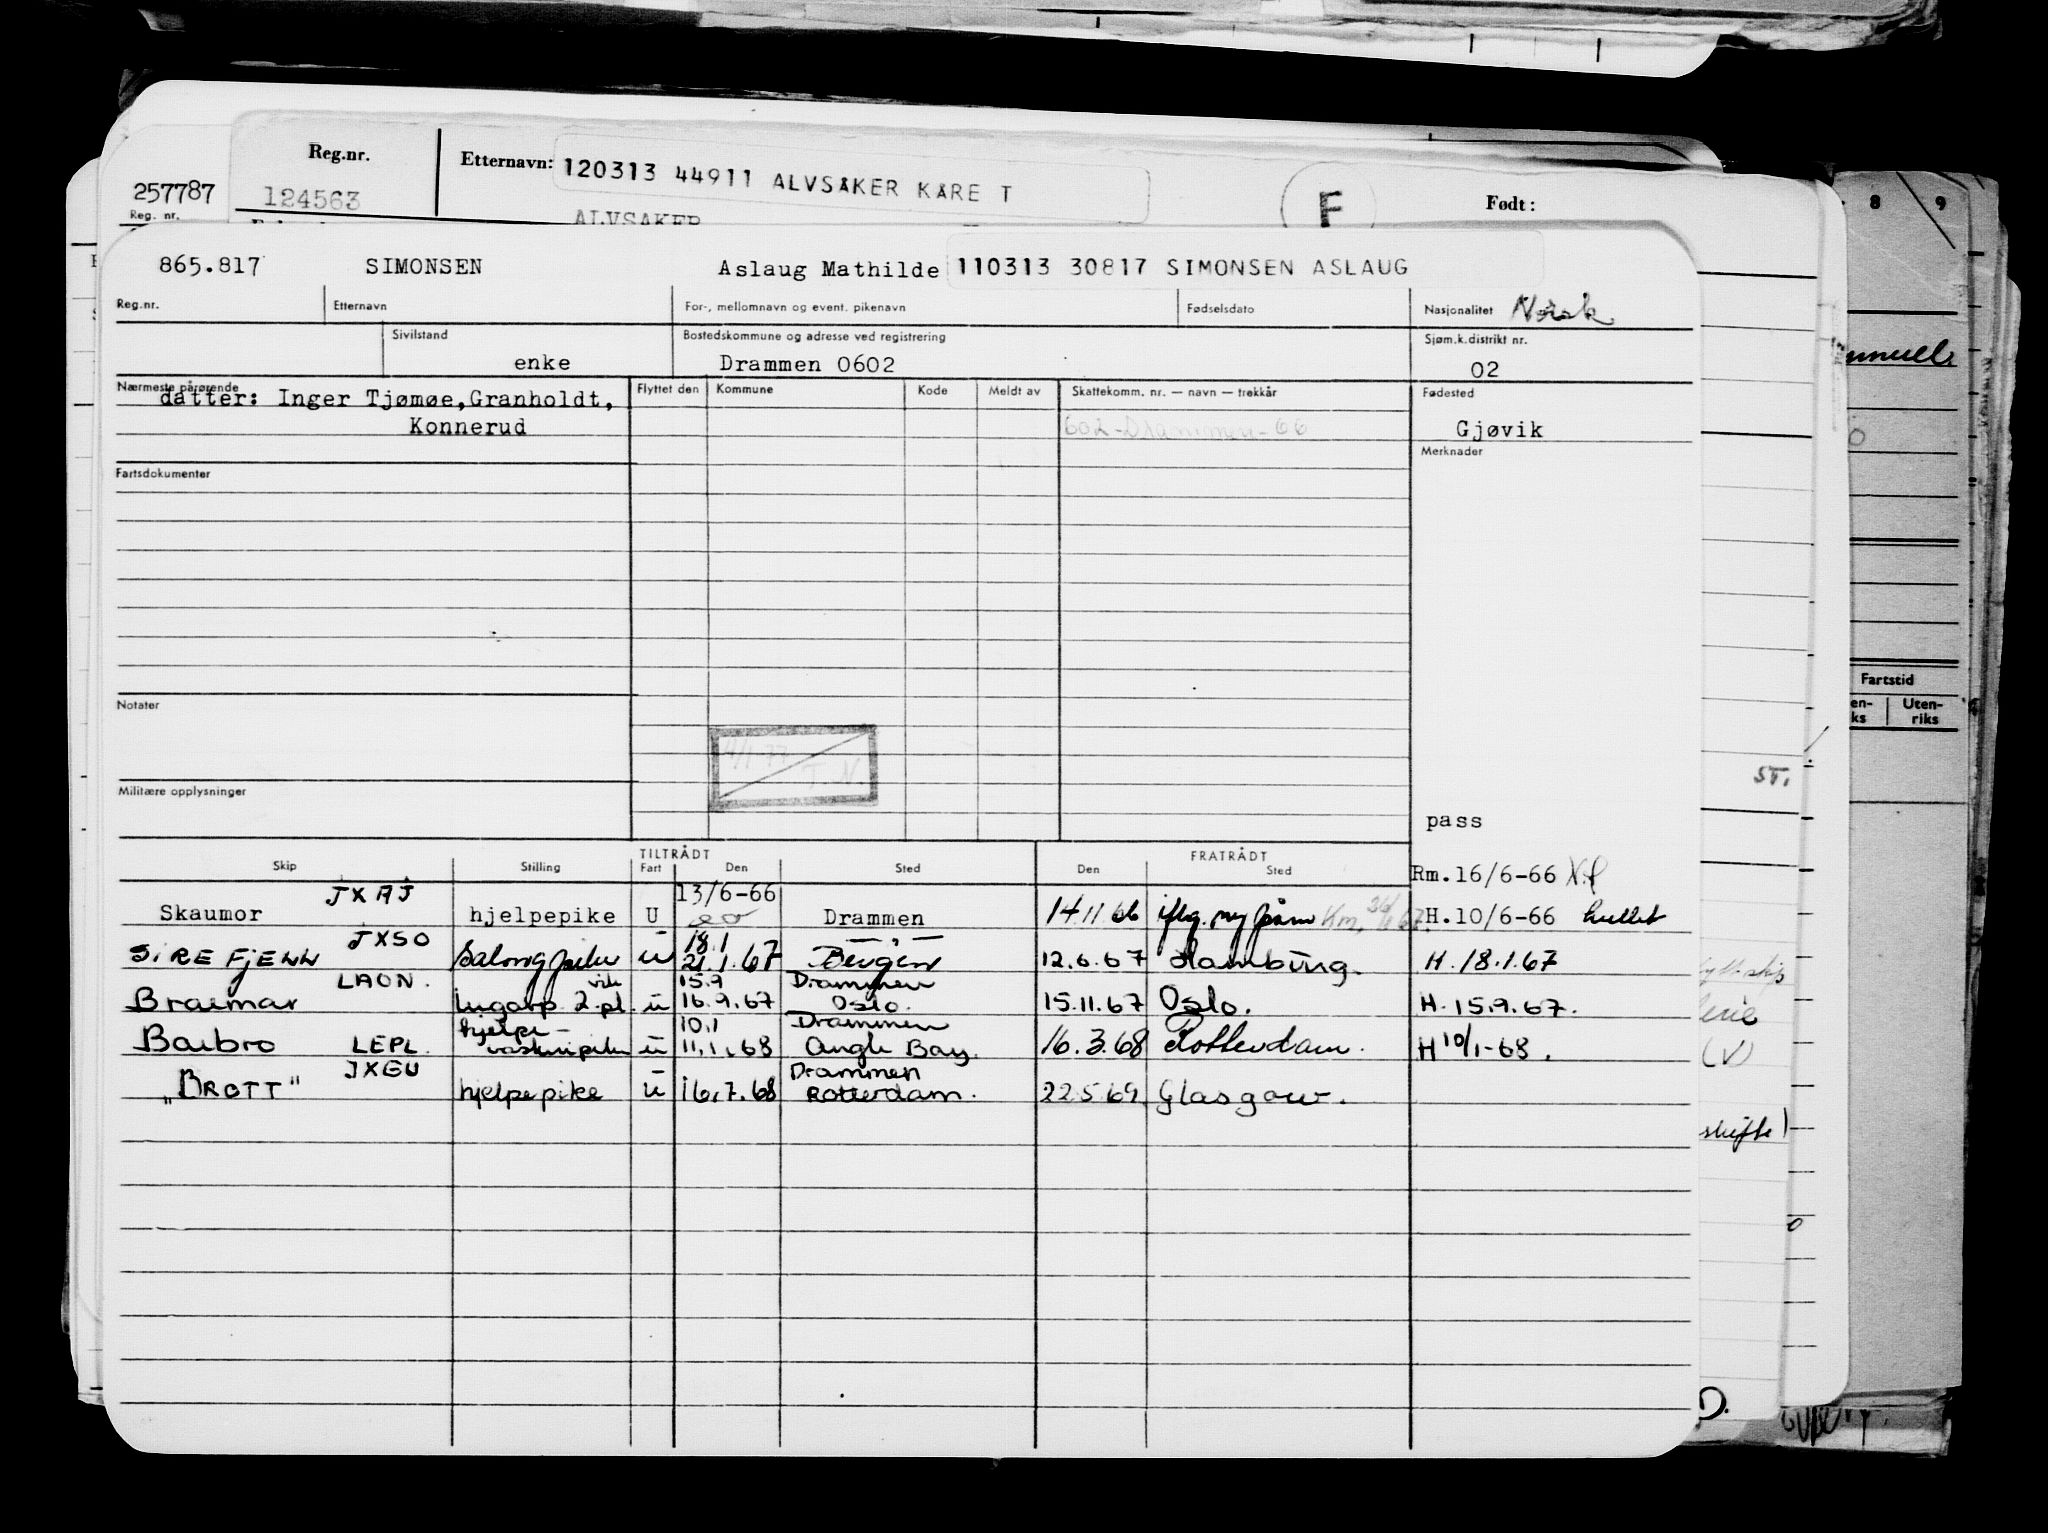 8 9
Reg.nr. Etternavn: 120313 44911 ALVSAKER KARE T F Født:
257787 124563
Reg. nr. ALVSAKER
865.817 SIMONSEN Aslaug Mathilde 110313 30817 SIMONSEN ASLAUG
Reg.nr. Etternavn For-, mellomnavn og event. pikenavn Fødselsdato Nasjonalitet Norsk
Sivilstand Bostedskommune og adresse ved registrering Sjøm.k.distrikt nr.
enke Drammen 0602 02
Nærmeste pårørende Flyttet den Kommune Kode Meldt av Skattekomm. nr. — navn — trekkår Fødested
datter: Inger Tjømøe,Granholdt,
Konnerud 602-Drammen-66 Gjøvik
Merknader
Fartsdokumenter
Fartstid
Uten-
riks
Notater
4/1 77
T. N.
ST.
Militære opplysninger
pass
TILTRÅDT FRATRÅDT
Skip Stilling Fart Den Sted Den Sted
Rm.16/6-66
JXAJ 13/6-66
Skaumor hjelpepike U Drammen 14.11.66 iflg. ny påm H.10/6-66
JXSO 18.1 — " —
SIREFJELL Salongpike u 21.1.67 Bergen 12.6.67 Hamburg. H.18.1.67
LAON. vik 15.9 Drammen
Braemar lugarp 2.pl. u 16.9.67 Oslo. 15.11.67 Oslo. H.15.9.67.
hjelpe- 10.1 Drammen
Baibro LEPL. vaskeripike u 11.1.68 Angle Bay. 16.3.68 Rotterdam. H 10/1-68.
JXGU Drammen
„BROTT" hjelpepike u 16.7.68 Rotterdam. 22.5.69 Glasgow.
(V)
skifte)